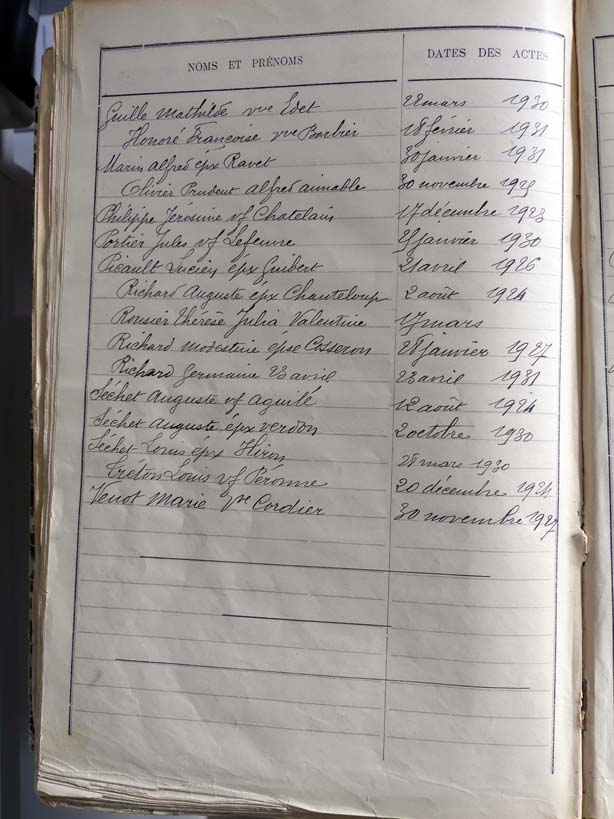 NOMS ET PRÉNOMS DATES DES ACTES
Guille Mathilde vve Edet 22 mars 1930
Honoré Françoise vve Barbier 18 février 1931
Marin alfred épx Ravet 30 janvier 1931
Olivier Prudent alfred aimable 30 novembre 1925
Philippe Jérosine vf Chatelain 17 décembre 1923
Portier Jules vf Lefeuvre janvier 1930
Picault Lucien épx Guibert 21 avril 1926
Richard Auguste épx Chanteloup 2 août 1924
Rousier thérèse Julia Valentine 17 mars
Richard modestine épse Cosseron 28 janvier 1927
Richard Germaine 23 avril 23 avril 1931
Séchet Auguste vf aguilé 12 août 1924
Séchet auguste épx verdon 2 octobre 1930
Séchet Louis épx Hiron mars 1930
Tréton Louis vf Péronne 20 décembre 1924
Venot Marie Vve Cordier 30 novembre 1927